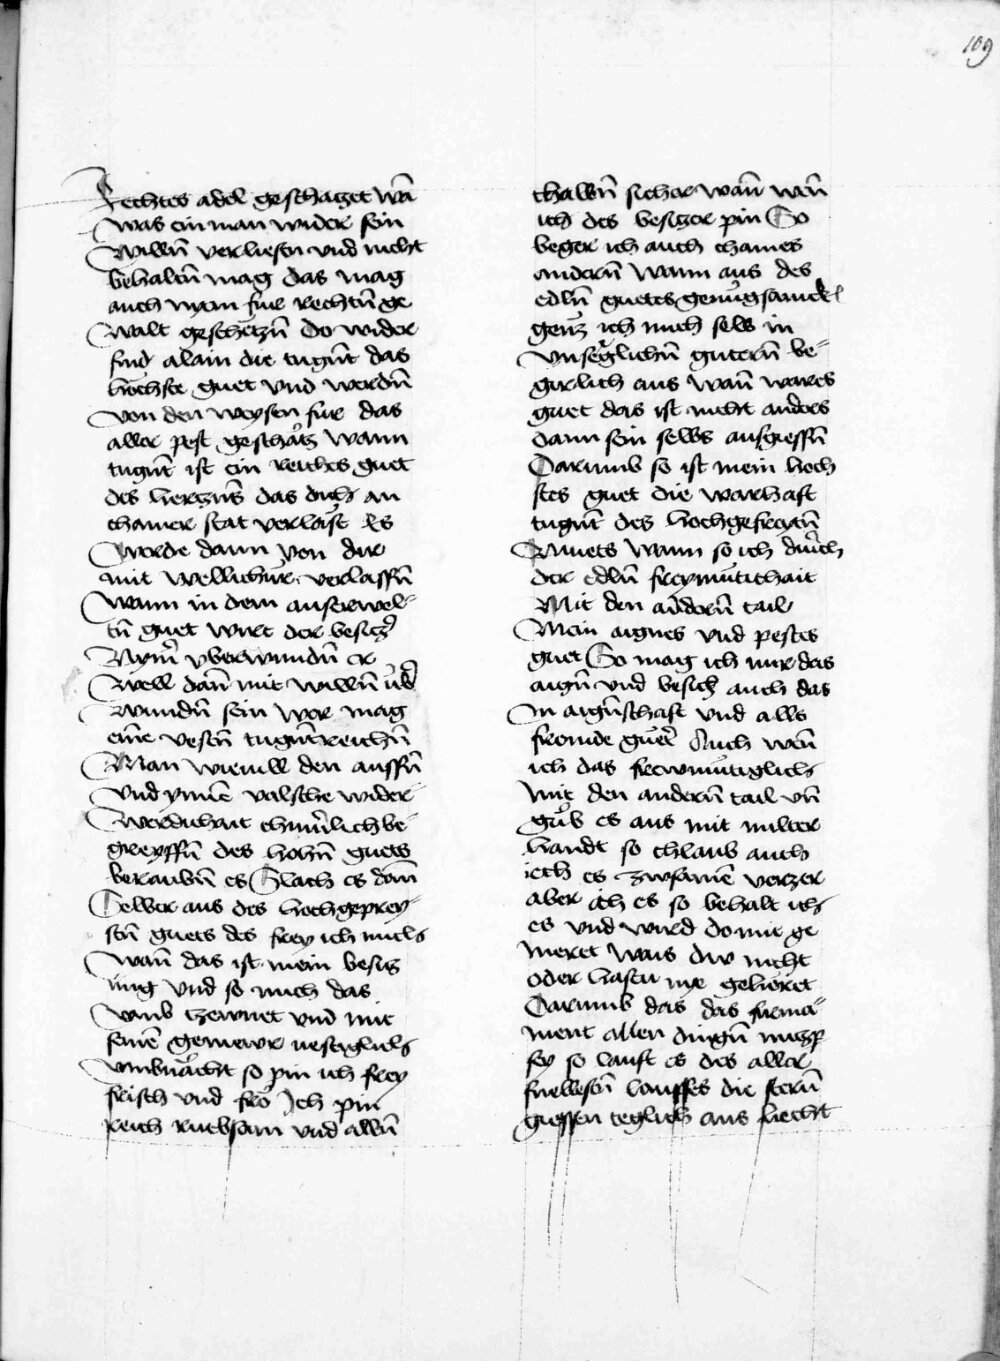 109
Rechtes adel geschatzet wan̄
was ein man wider sein
Willn̄ verliesen vnd nicht
behaltn̄ mag das mag
auch nyem fur rechtn̄ ge
walt geschetzn̄ do wider
sind alain die tugn̄t das
hochste guet vnd werdn̄
von den weysen fur das
aller pest geschatz wann
tugn̄t ist ein reiches guet
des hertzn̄s das dich an
chainer stat verlast Es
werde dann von dir
mit wellichur verlassn̄
wann in dem auserwel
tn̄ guet wirt der besitzer
Nymer vberwundn̄ er
Well dan̄ mit willn̄ vber
wundn̄ sein wer mag
eine vestn̄ tugn̄treichn̄
Man wie will den aussn̄
vnd ynnē valsche wider
werdichait chumerlich be
greyffn̄ des hohn̄ guets
beraubn̄ es Slach es dan̄
Selber aus des hochgeprey
stn̄ guets des frey ich mich
wan̄ das ist mein besitz
ung vnd so mich das
vmb tzewnet vnd mit
seinē gemewr vestiglich
vmbuacht so pin ich frey
frisch vnd fro Ich pin
reich rubsam vnd alln̄
thalbn̄ sicher wan̄ wen̄
ich des besitzer pin So
beger ich auch chaines
andern̄ wann aus des
edln̄ guetes genugsamck
geuz ich mich selb in
vnseglichn̄ gutern̄ be
girlich aus wan̄ wares
guet das ist nicht anders
dann sein selbs ausgiessn̄
Darumb so ist mein hoch
stes guet die warhaft
tugn̄t des hochgefreytn̄
Muets wann so ich durch
der edln̄ freymutichait
Mit den andern̄ tail
Mein aignes vnd pestes
guet So mag ich mir das
aign̄ vnd besich auch das
In aign̄schaft vnd alls
fromde guet Auch wen̄
ich das frewmutiglich
mit den andern̄ tail vn̄
gib es aus mit milter
handt so chlaub auch
icth es zwsamē verzer
aber ich es so behalt ich
es vnd wird do mit ge
meret wais dw nicht
oder hastu nye gehoret
Darumb das das firma
ment allen dingn̄ nutz
sey so lauft es des aller
snellesn̄ lauffes die stern̄
giessen teglich aus liecht